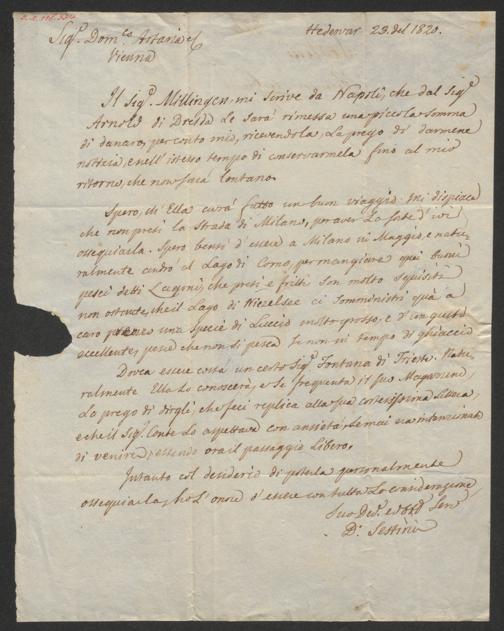 Hedervar 23. del 1820.
Sigr. Domco. Artaria e C
Vienna
Il Sigr. Millingen mi scrive da Napoli, che dal Sigr.
Arnold di Dresda Le sarà rimessa una piccola somma
di danaro, per conto mio, ricevendola, La prego di darmene
notizia, e nell'istesso tempo di conservarmela fino al mio
ritorno, che non sarà lontano.
Spero, ch'Ella avrà fatto un buon viaggio. Mi dispiace
che non presi la strada di Milano, per aver La sorte d'ivi
ossequiarla. Spero bensì d'essere a Milano in Maggio, e natu=
ralmente andrò al Lago di Como, per mangiare quei buoni
pesci detti Lagoni, che presi e fritti son molto squisiti
non ostante, che il Lago di ci somministri quà a
caro una specie di Luccio molto grosso, e d'un gusto
eccellente, pesce che non si pesca se non in tempo di ghiaccio
Dovea essere costà un certo Sigr. Fontana di Trieste. Natu=
ralmente Ella Lo conoscerà, e se frequenta il suo Magazzeno
La prego di dirgli, che feci replica alla sua cortesissima Lettera,
e che il Sigr. Conte Lo aspettava con ansietà, se mai era intenzionato
di venire, essendo ora il passaggio Libero.
Intanto col desiderio di poterla personalmente
ossequiarla, ho L'onore d'essere con tutta La considerazione
Suo Devo. ed Serv
Do. Sestini